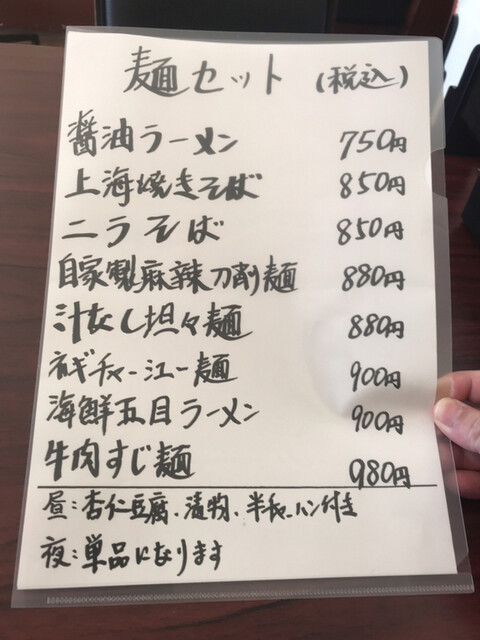 麺セット (税込)
醤油ラーメン 750円
上海焼きそば 850円
ニラそば 850円
自家製麻辣刀削麺 880円
汁なし担々麺 880円
ネギチャーシュー麺 900円
海鮮五目ラーメン 900円
牛肉すじ麺 980円
昼:杏仁豆腐、漬物、半チャーハン付き
夜:単品になります